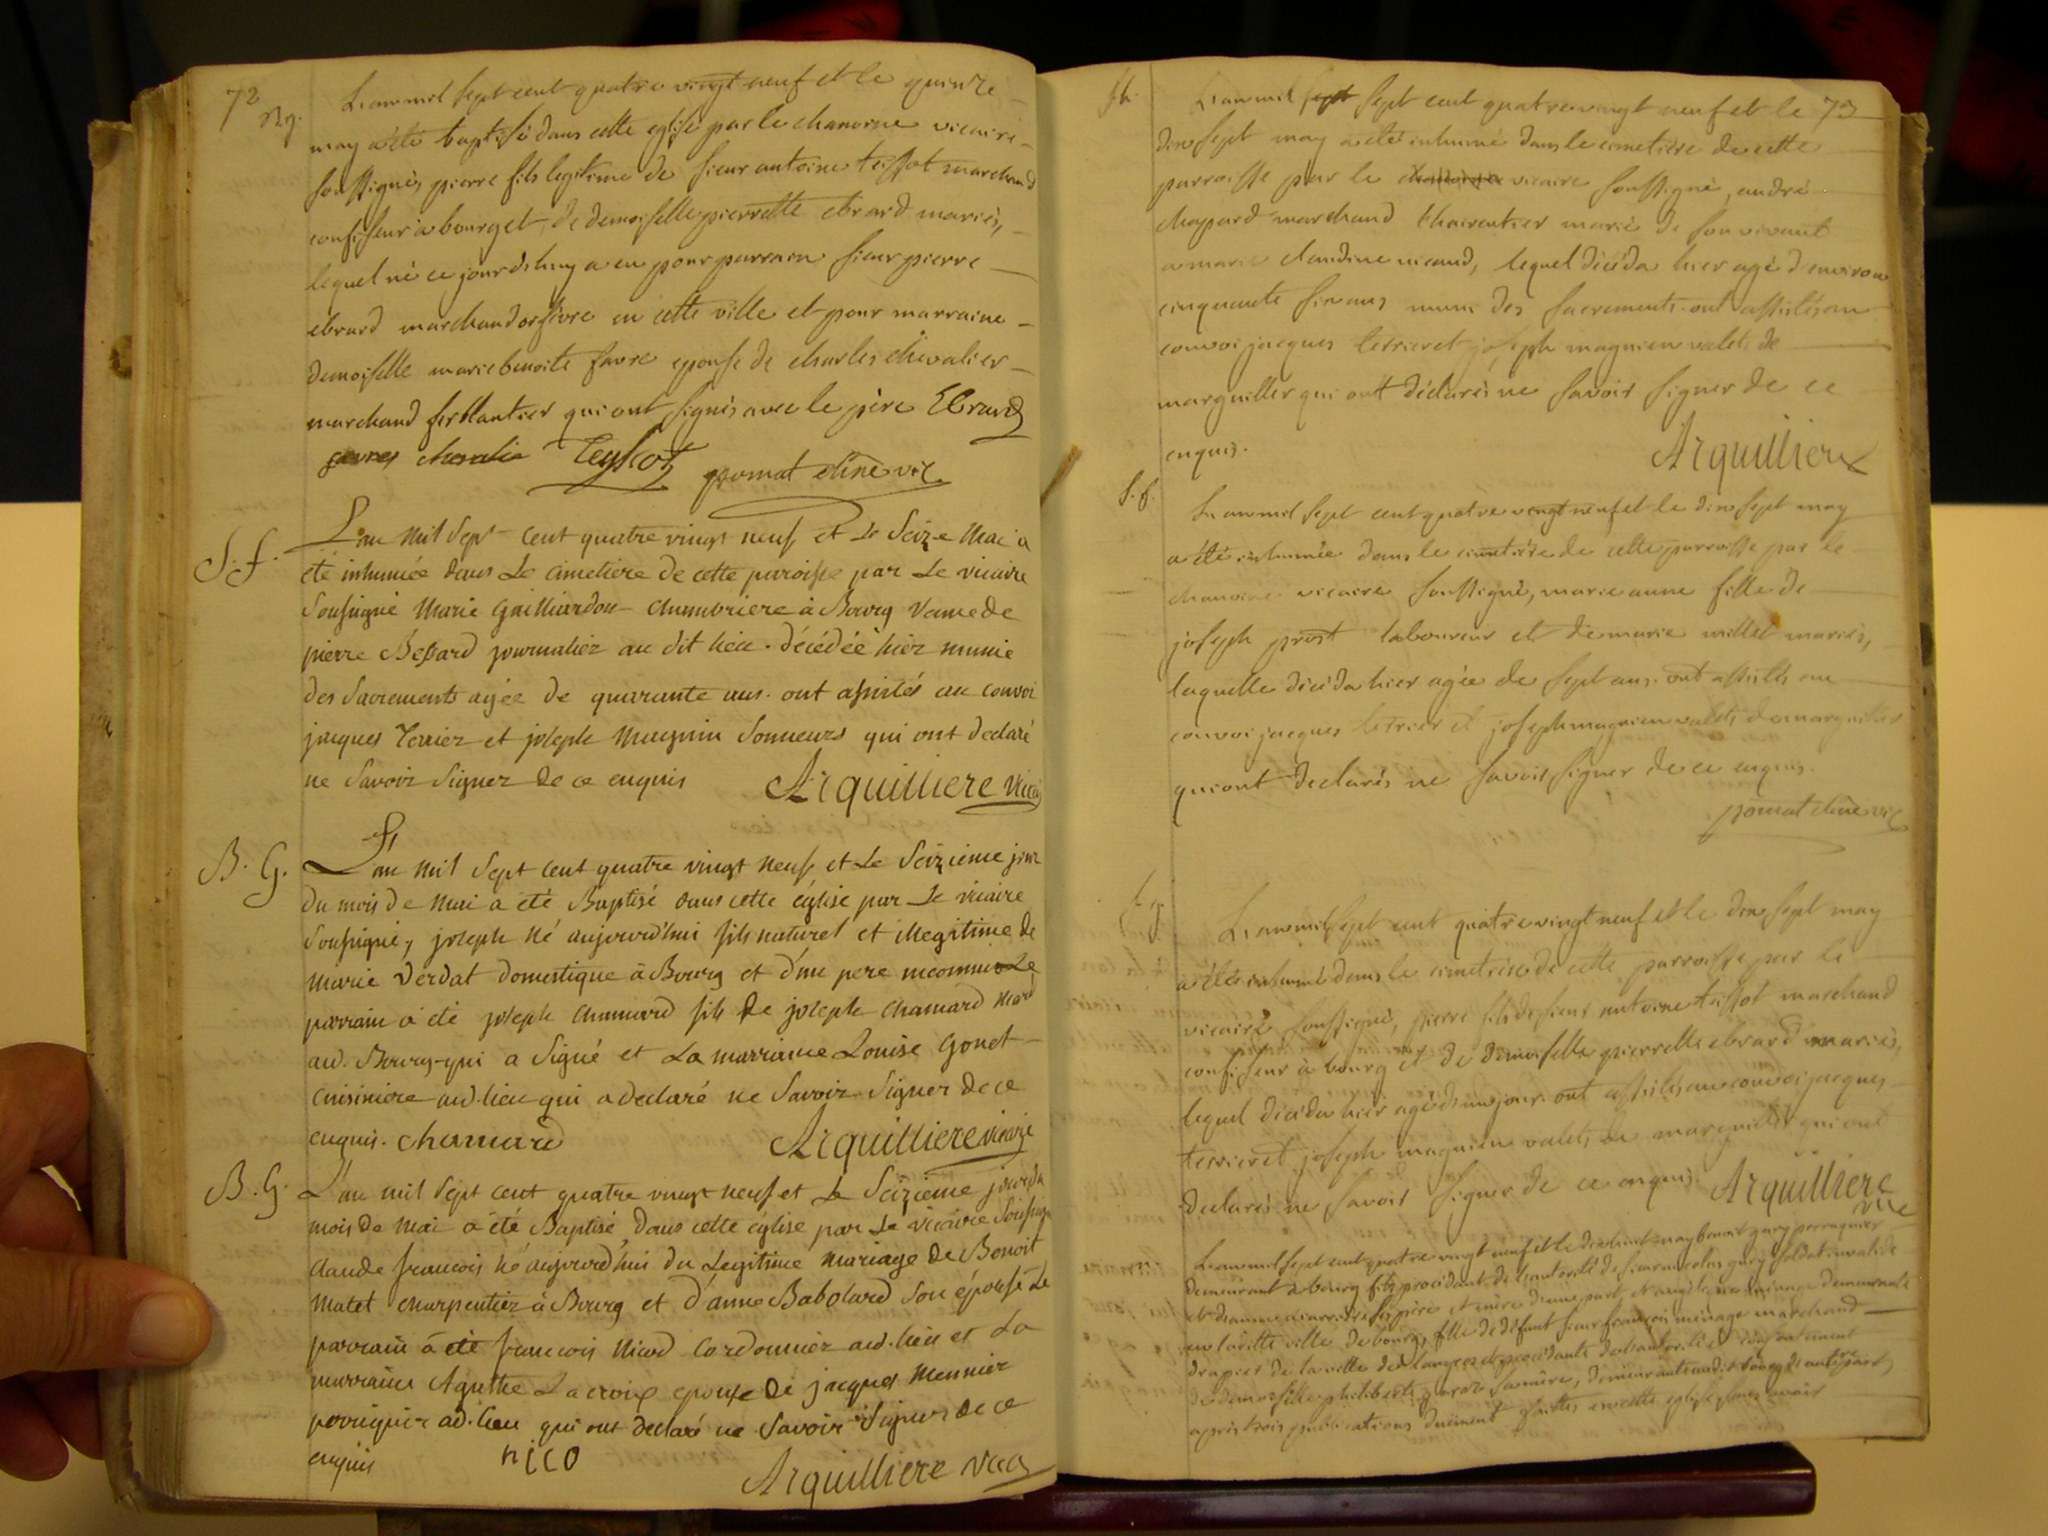 72
B.g.
L'an mil sept cent quatre vingt neuf et le quinze
may a été baptisé dans cette eglise par le chanoine vicaire
soussigné, pierre fils legitime de sieur antoine teissot marchand
confiseur a bourg et de demoiselle pierrette ebrard mariés,
lequel né ce jourd'huy a eu pour parrain sieur pierre
ebrard marchand orfèvre en cette ville et pour marraine
demoiselle marie benoite favre epouse de charles chevalier
marchand ferblantier qui ont signés avec le père Ebrard
chevalier Teyssot
S. f.
L'an mil sept cent quatre vingt neuf et Le Seize Mai a
été inhumée dans Le cimetiere de cette paroisse par Le vicaire
Soussigné Marie Gailliardon chambriere à Bourg veuve de
pierre Bessard journalier au dit lieu. décédée hier munie
des Sacrements agée de quarante ans. ont assistés au convoi
jacques Terrier et joseph Magnin Sonneurs qui ont declaré
ne Savoir Signer de ce enquis Arquilliere Vicai
B. G.
L'an mil Sept cent quatre vingt neuf et Le Seizieme jour
du mois de Mai a été Baptisé dans cette église par Le vicaire
Soussigné, joseph né aujourd'hui fils naturel et illegitime de
Marie Verdat domestique à Bourg et d'un pere inconnu Le
parrain a été joseph chamard fils de joseph chamard mard
aud. Bourg qui a Signé et La marraine Louise Gonet
cuisiniere aud. lieu qui a declaré ne Savoir Signer de ce
enquis. chamard Arquilliere vicaire
B. G.
L'an mil Sept cent quatre vingt neuf et Le Seizieme jour du
mois de Mai a été Baptisé dans cette église par Le vicaire Soussigné
claude francois né aujourd'hui du Legitime Mariage de Benoit
Matet charpentier à Bourg et d'anne Babolard Son épouse Le
parrain a été francois Nicod Cordonnier aud. lieu et La
marraine Agathe Lacroix epouse de jacques Meunier
perruquier ad. lieu qui ont declaré ne Savoir Signer de ce
enquis nico Arquilliere
73
L'an mil sept cent quatre vingt neuf et le
dix sept may a été inhumé dans le cimetière de cette
parroisse par le vicaire soussigné, andré
chapard marchand chaircutier marié de son vivant
a marie claudine nicaud, lequel décéda hier agé d'environ
cinquante six ans muni des sacrements. ont assistés au
convoi jacques terrier et joseph magnien valets de
marguiller qui ont déclarés ne savoir signer de ce
enquis. Arquilliere
S. f.
L'an mil sept cent quatre vingt neuf et le dix sept may
a été inhumée dans le cimetière de cette parroisse par le
chanoine vicaire soussigné, marie anne fille de
joseph prost laboureur et de marie millet mariés,
laquelle décéda hier agée de sept ans. ont assistés au
convoi jacques terrier et joseph magnien valets de marguiller
qui ont declarés ne savoir signer de ce enquis.
L'an mil sept cent quatre vingt neuf et le dix sept may
a été inhumé dans le cimetière de cette parroisse par le
vicaire soussigné, pierre fils de sieur antoine teissot marchand
confiseur a bourg et de demoiselle pierrette ebrard mariés,
lequel décéda hier agé d'un jour. ont assistés au convoi jacques
terrier et joseph magnien valets de marguiller qui ont
declarés ne savoir signer de ce enquis. Arquilliere
vic
L'an mil sept cent quatre vingt neuf et le dix huit may benoit gary perruquier
demeurant a bourg fils procédant de l'autorité de sieur nicolas gary soldat invalide
père et mère d'une part, et
en laditte ville de bourg, fille de défunt sieur françois menage marchand
drapier de la ville de langres et procédante de l'autorité et consentement
de demoiselle philiberte sa mère, demeurante audit bourg d'autre part,
après trois publications duëment faittes en cette eglise sans avoir